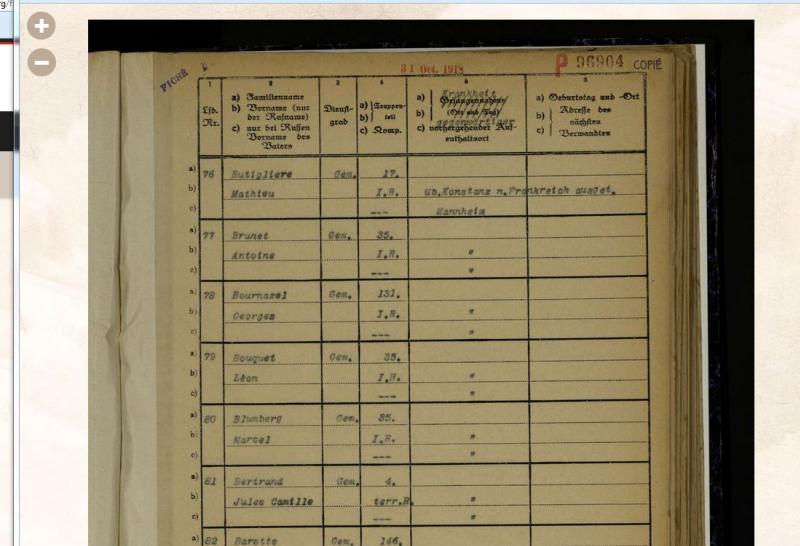 rg/f
FICHÉ
31 Oct. 1918
P 96904 COPIÉ
1 2 3 4 5
Lfd. Nr.
a) Familienname
b) Vorname (nur der Rufname)
c) nur bei Russen Vorname des Vaters
Dienst-grad
a) Truppen-
b) teil
c) Komp.
Krankheit
a) Gefangennahme
b) (Ort und Tag)
gegenwärtiger
c) vorhergehender Auf-enthaltsort
a) Geburtstag und -Ort
b) Adresse des
c) nächsten Verwandten
a) 76 Butigliere Gem. 17.
b) Mathieu I.R. üb.Konstanz n.Frankreich ausget.
c) --- Mannheim
a) 77 Brunet Gem. 35.
b) Antoine I.R. "
c) --- "
a) 78 Bournazel Gem. 131.
b) Georges I.R. "
c) --- "
a) 79 Bouquet Gem. 35.
b) Léon I.R. "
c) --- "
a) 80 Blumberg Gem. 35.
b) Marcel I.R. "
c) --- "
a) 81 Bertrand Gem. 4.
b) Jules Camille terr.R. "
c) --- "
a) 82 Barotte Gem. 146.